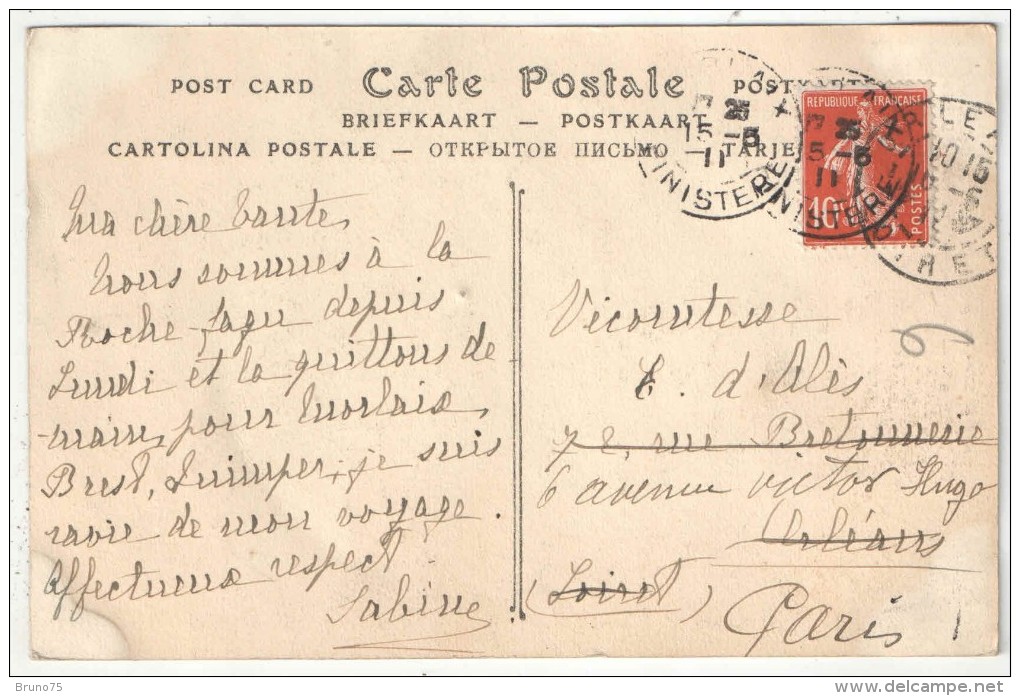 POST CARD Carte Postale
BRIEFKAART — POSTKAART
CARTOLINA POSTALE — ОТКРЫТОЕ ПИСЬМО — TARJE
REPUBLIQUE FRANÇAISE
10
POSTES
25
15 -5
11
25
15 -5
11
FINISTERE
FINISTERE
Ma chère Tante,
Nous sommes à la
Roche-Jagu depuis
Lundi et la quittons de-
main, pour Morlaix,
Brest, Quimper, je suis
ravie de mon voyage.
Affectueux respect
Sabine
Vicomtesse
C. d'Alès
72, rue Bretonnerie
6 avenue Victor Hugo
Orléans
(Loiret)
Paris
6
Bruno75
www.delcampe.net